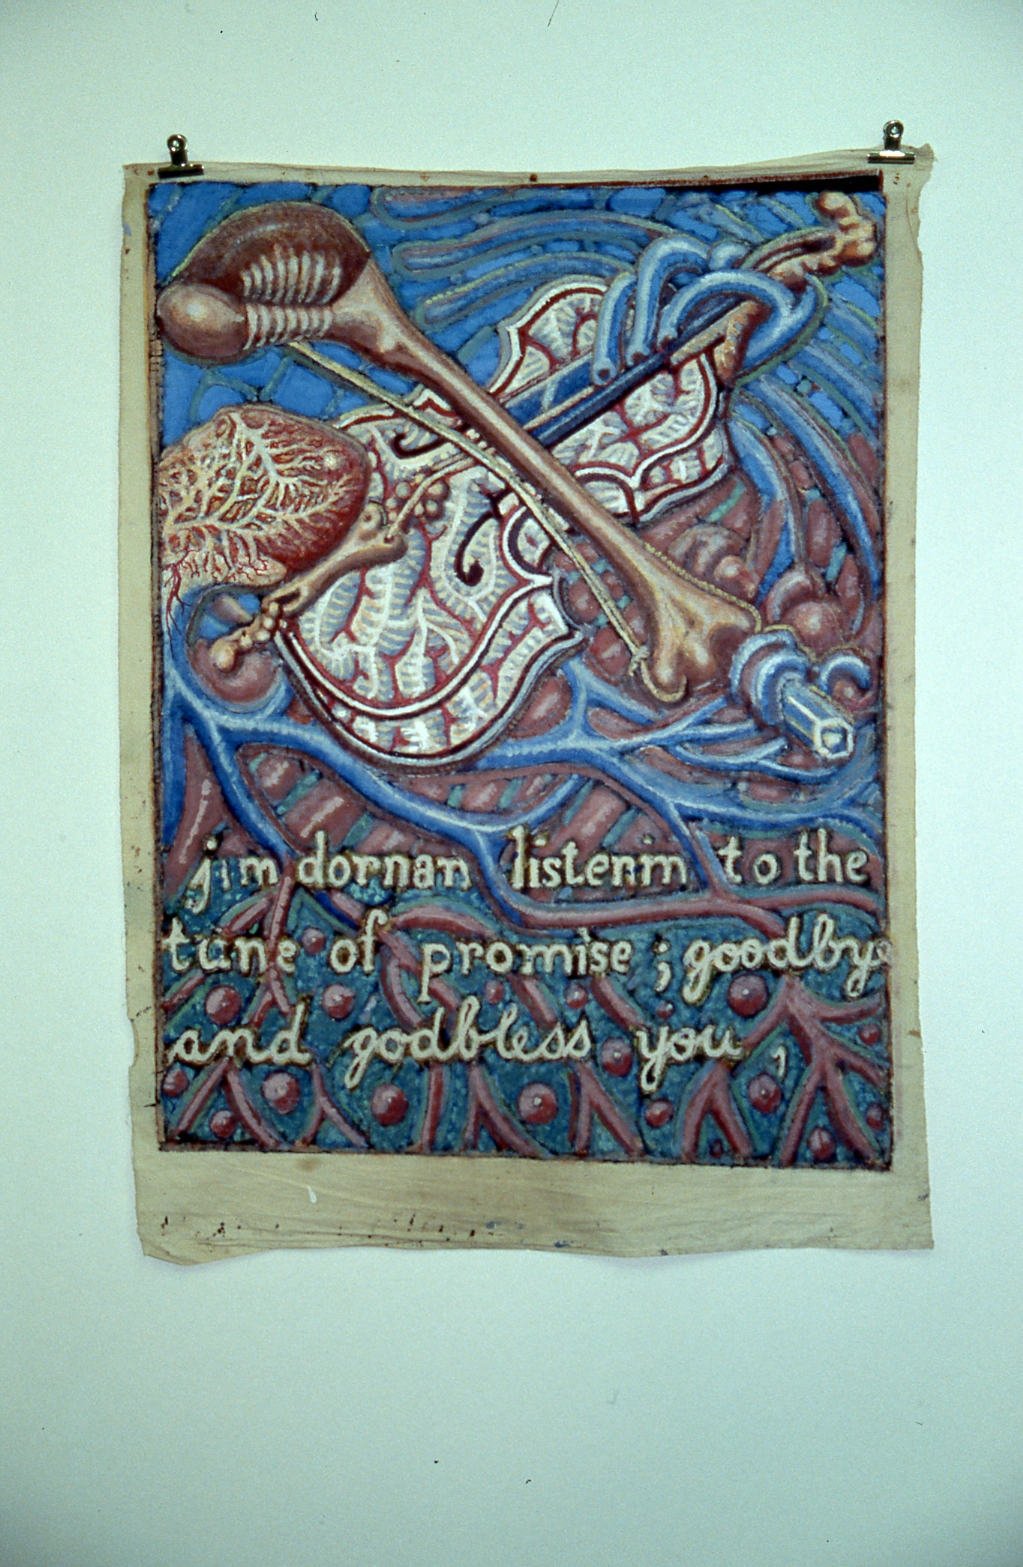 jim dornan listenin to the
tune of promise ; goodbye
and godbless you ,